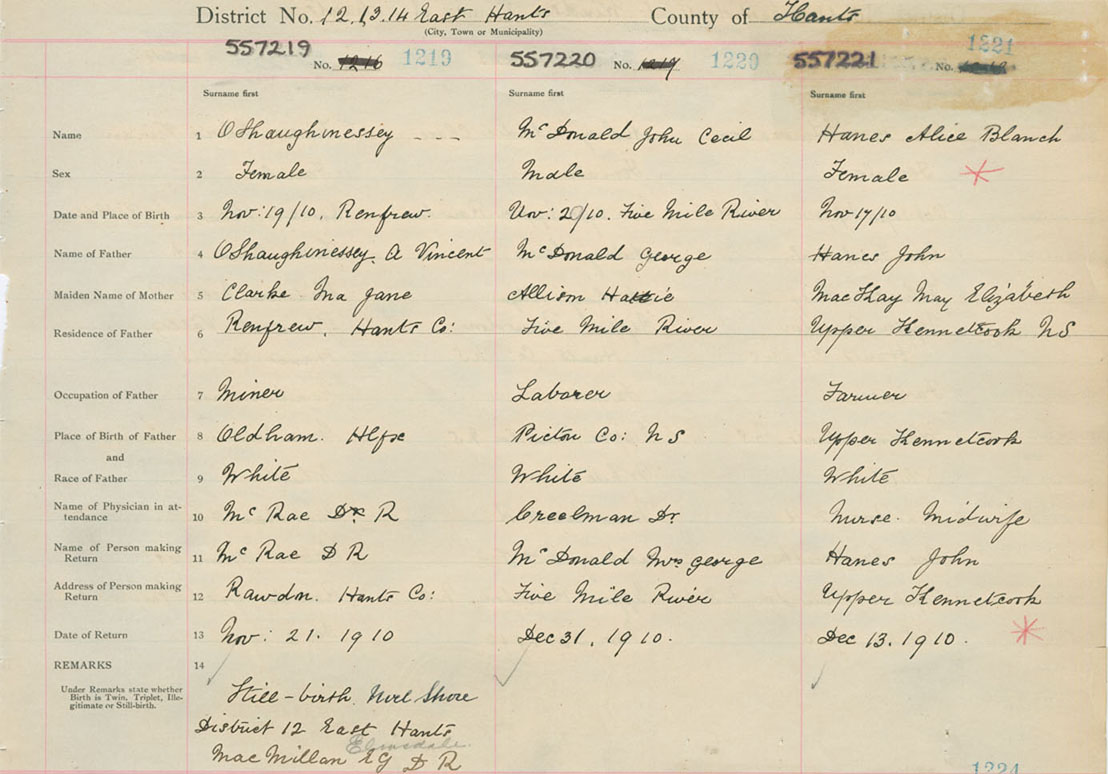 District No. 12,13.14 East Hants County of Hants
(City, Town or Municipality)
557219 No. 1219 557220 No. 1217 1220 557221 No. 1221
Surname first Surname first Surname first
Name 1 OShaughnessey --- McDonald John Cecil Hanes Alice Blanch
Sex 2 Female Male Female
Date and Place of Birth 3 Nov: 19/10, Renfrew. Nov: 20/10. Five Mile River Nov 17/10
Name of Father 4 OShaughnessey. A Vincent McDonald George Hanes John
Maiden Name of Mother 5 Clarke Ina Jane Allison Hattie MacKay May Elizabeth
Residence of Father 6 Renfrew. Hants Co: Five Mile River Upper Kennetcook NS
Occupation of Father 7 Miner Laborer Farmer
Place of Birth of Father 8 Oldham. Hlfx Pictou Co: NS Upper Kennetcook
and
Race of Father 9 White White White
Name of Physician in at-
tendance 10 McRae Dr R Creelman Dr Nurse. Midwife
Name of Person making
Return 11 McRae D R McDonald Mrs George Hanes John
Address of Person making
Return 12 Rawdon. Hants Co: Five Mile River Upper Kennetcook
Date of Return 13 Nov: 21. 1910 Dec 31, 1910. Dec 13. 1910.
REMARKS 14
Under Remarks state whether
Birth is Twin, Triplet, Ille-
gitimate or Still-birth.
Still-birth. Noel Shore
District 12 East Hants
Elmsdale
MacMillan EG D R
1224